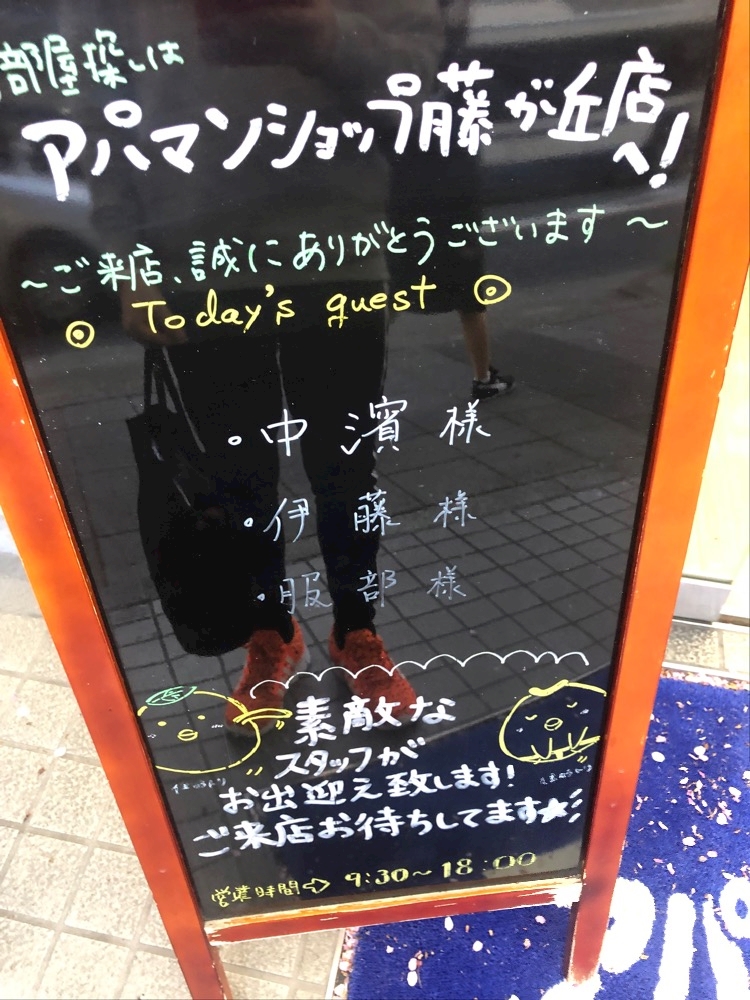 部屋探しは
アパマンショップ藤が丘店
へ!
~ご来店、誠にありがとうございます~
◎ Today's guest ◎
・中濱様
・伊藤様
・服部様
素敵な
スタッフが
お出迎え致します!
ご来店お待ちしてます★
営業時間⇨ 9:30~18:00
アパ